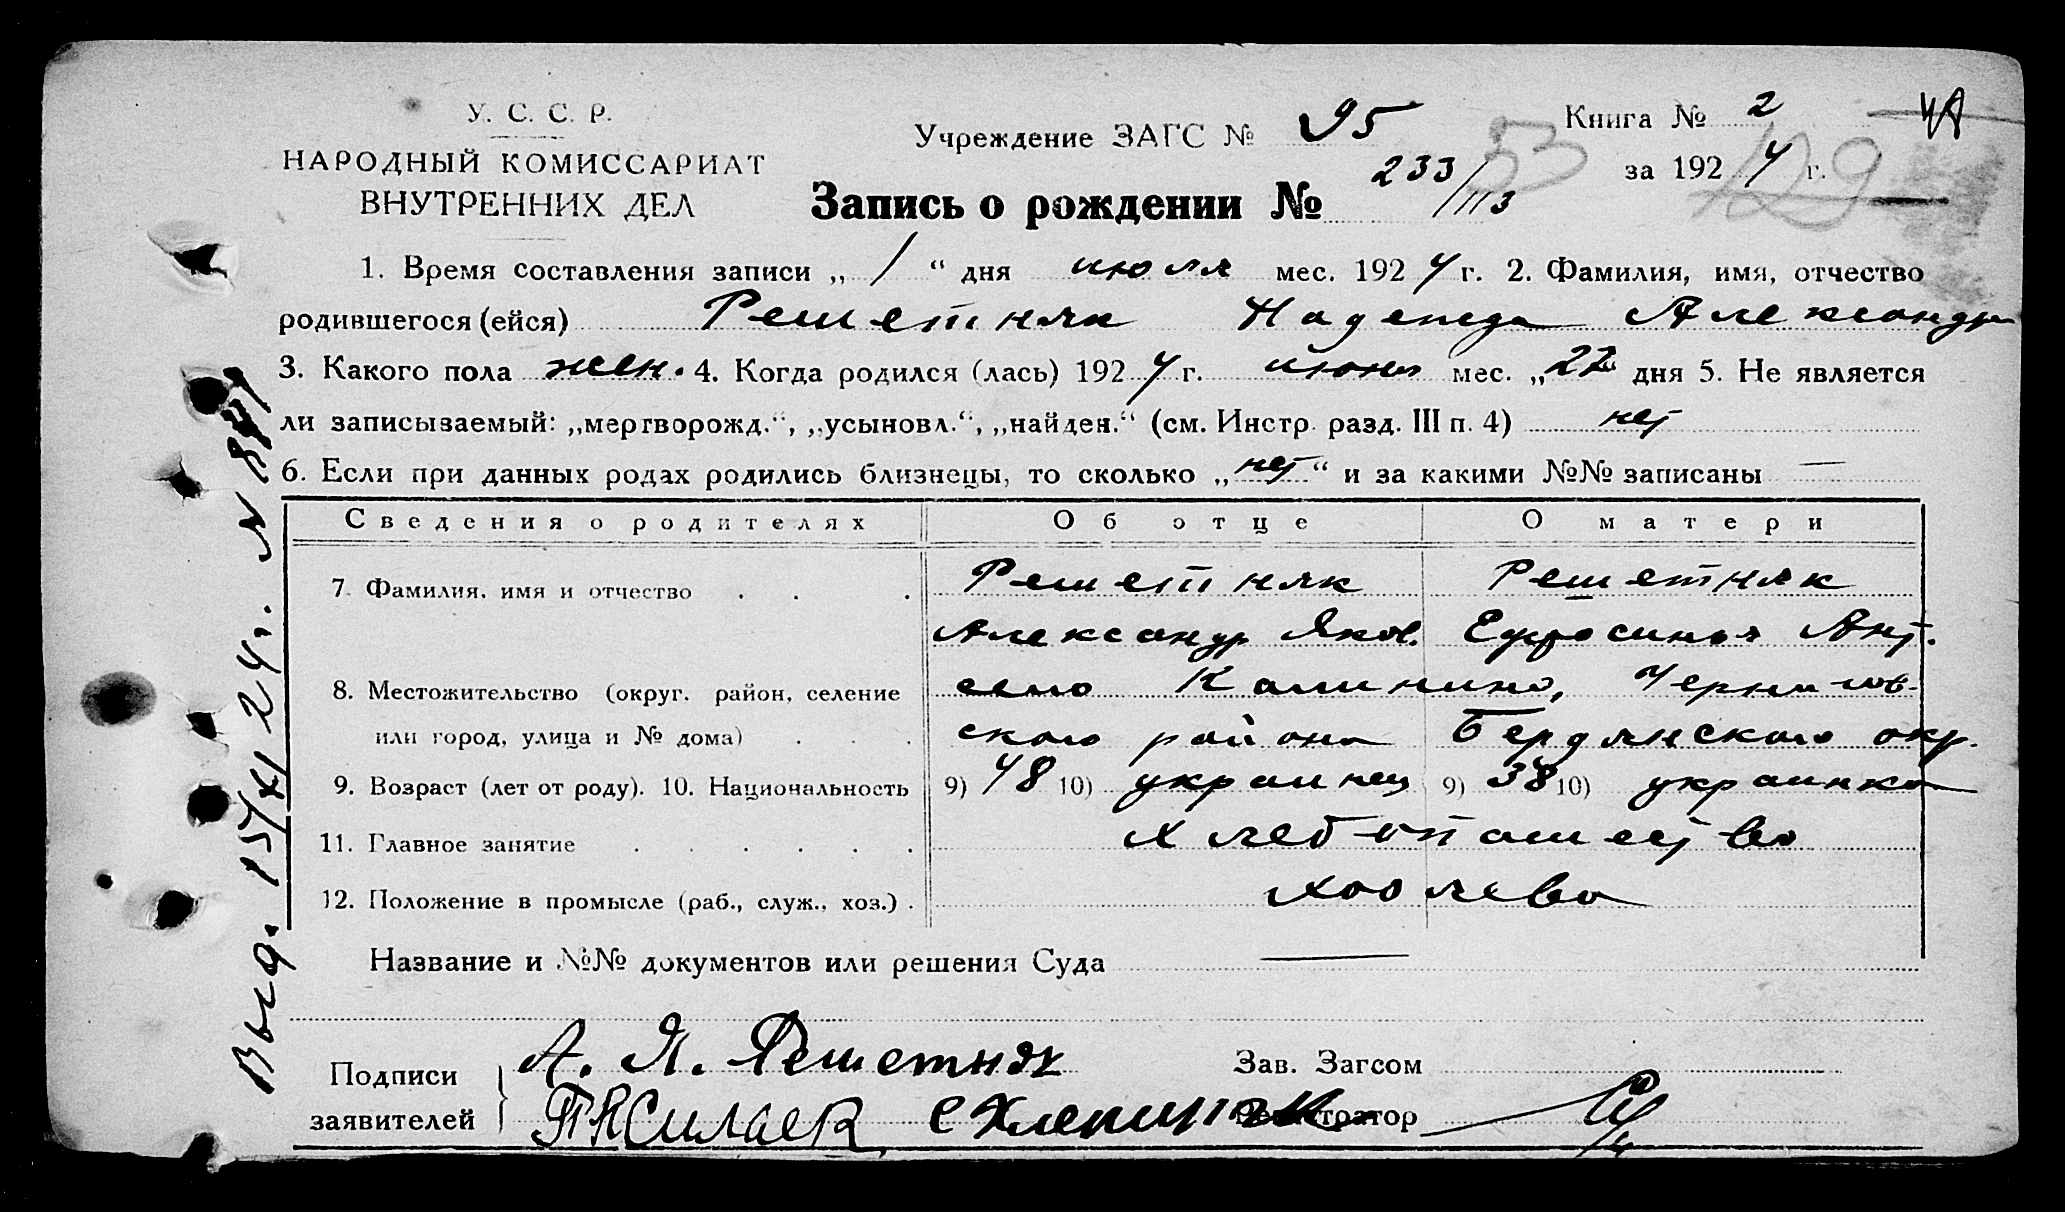 У. С. С. Р.
НАРОДНЫЙ КОМИССАРИАТ
ВНУТРЕННИХ ДЕЛ
Учреждение ЗАГС № 95
Книга № 2
за 1924 г.
53
129
Запись о рождении № 233/113
1. Время составления записи „1“ дня июля мес. 1924 г. 2. Фамилия, имя, отчество
родившегося (ейся) Решетняк Надежда Александр
3. Какого пола жен. 4. Когда родился (лась) 1924 г. июня мес. „22 дня 5. Не является
ли записываемый: „мертворожд.“, „усыновл.“, „найден.“ (см. Инстр. разд. III п. 4) нет
6. Если при данных родах родились близнецы, то сколько „нет“ и за какими №№ записаны —
Сведения о родителях Об отце О матери
7. Фамилия, имя и отчество Решетняк Решетняк
Александр Яков. Ефросинья Ант.
8. Местожительство (округ. район, селение село Калинино, Чернигов-
или город, улица и № дома) ского района Бердянского окр.
9. Возраст (лет от роду). 10. Национальность 9) 48 10) украинец 9) 38 10) украинка
11. Главное занятие Хлебопашество
12. Положение в промысле (раб., служ., хоз.) хозяева
Название и №№ документов или решения Суда —
Подписи
заявителей
А. Я. Решетняк
Силаев
Зав. Загсом
Регистратор
Выд. 15/XI 24 г. №